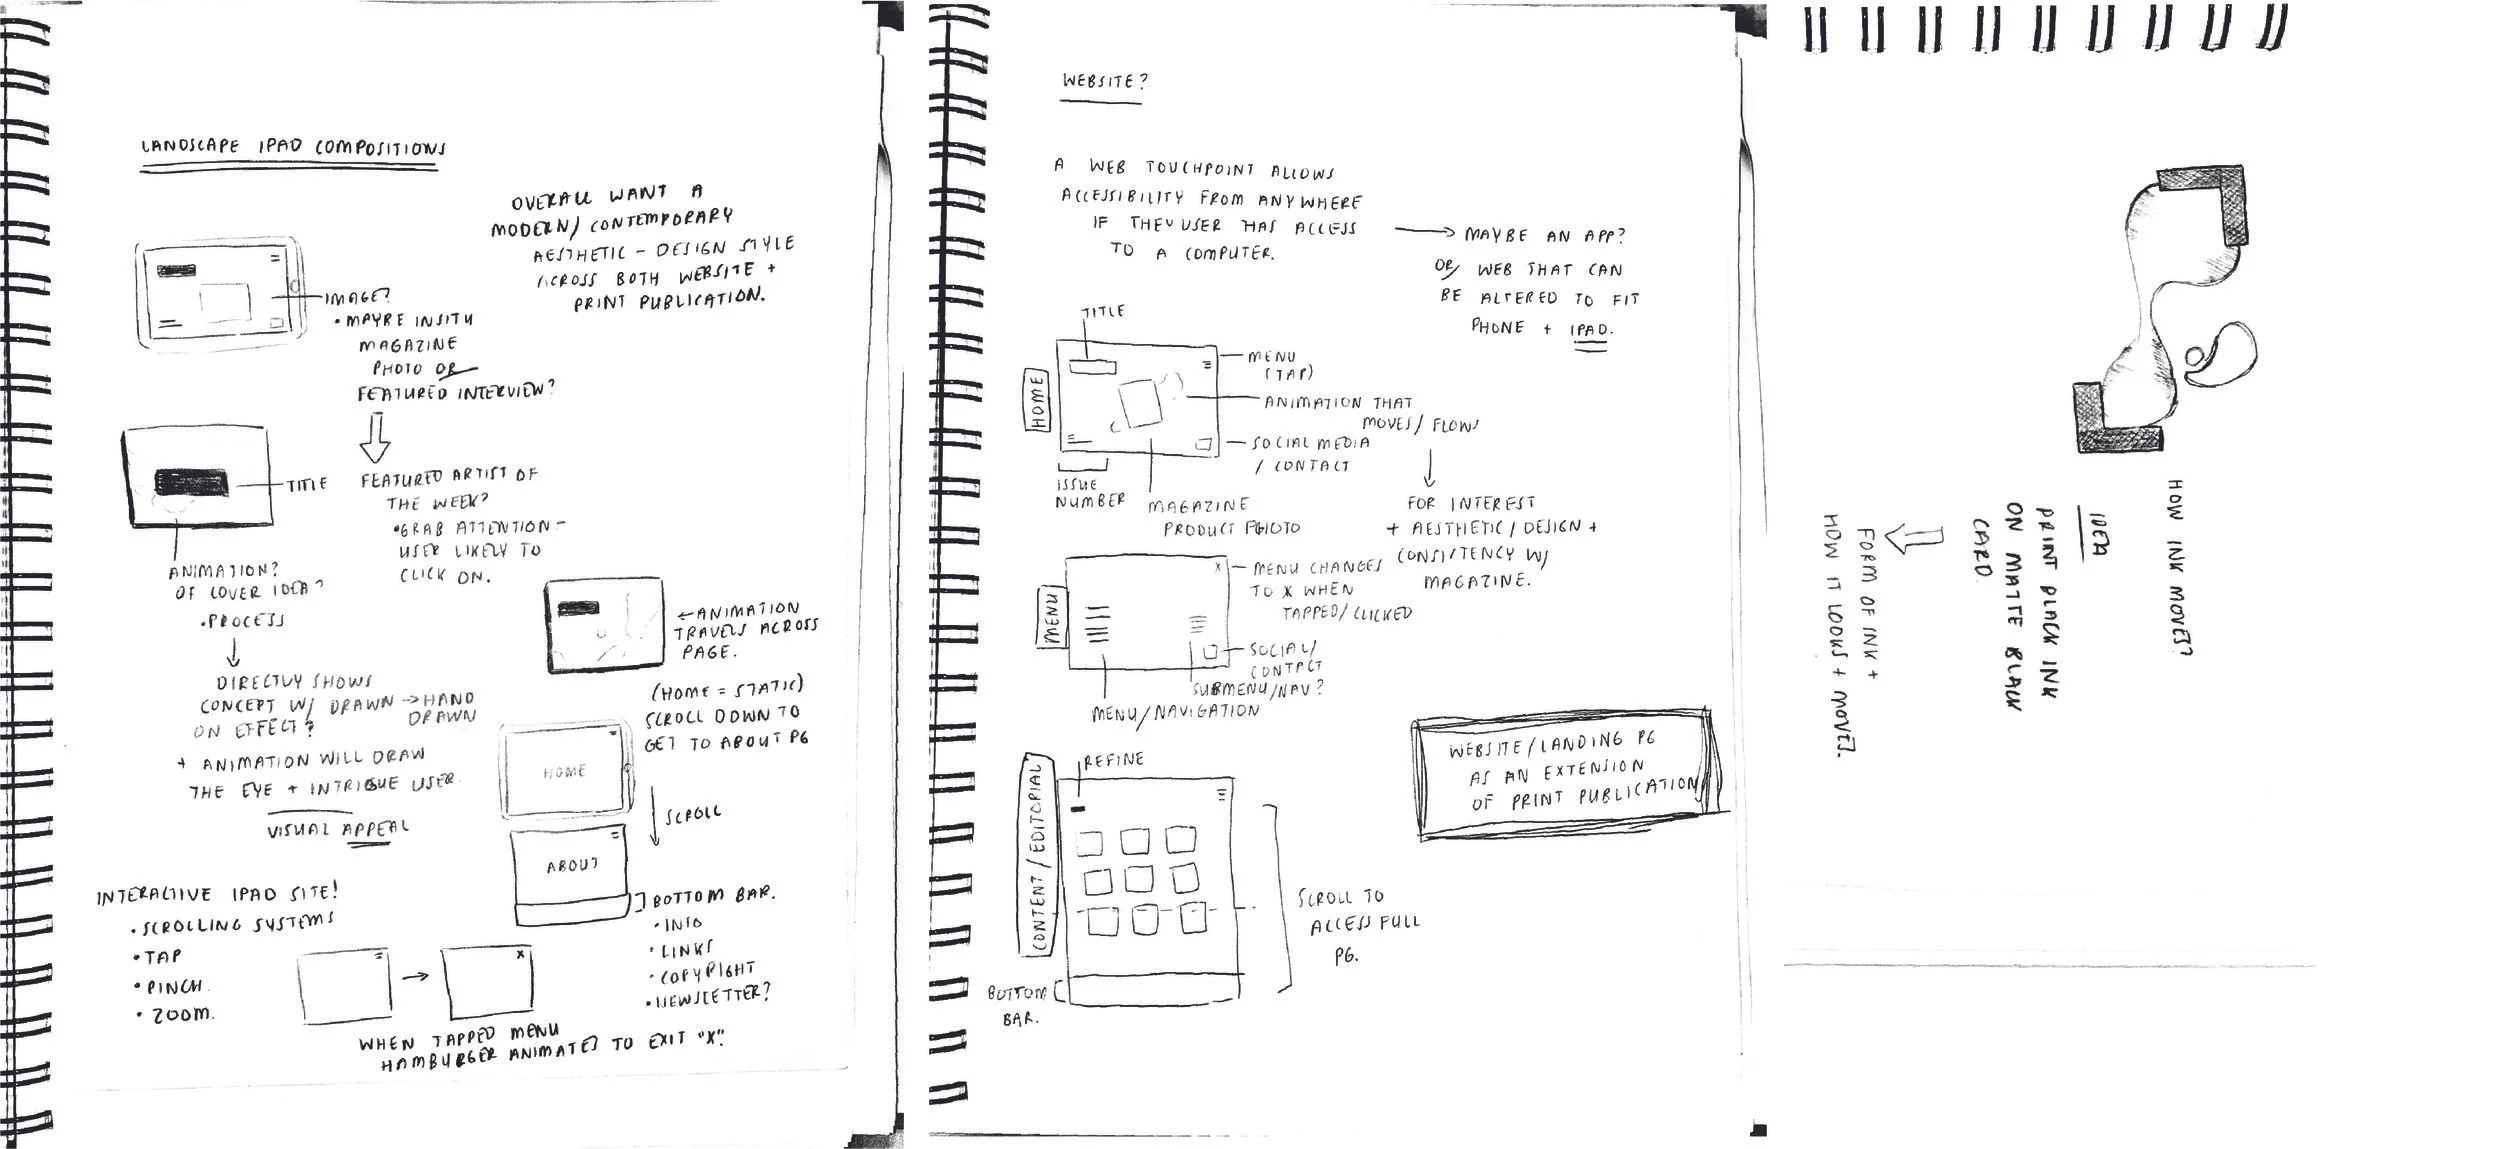 LANDSCAPE IPAD COMPOSITIONS
OVERALL WANT A
MODERN/ CONTEMPORARY
AESTHETIC - DESIGN STYLE
ACROSS BOTH WEBSITE +
PRINT PUBLICATION.
IMAGE?
• MAYBE INSITU
MAGAZINE
PHOTO OR
FEATURED INTERVIEW?
TITLE
FEATURED ARTIST OF
THE WEEK?
• GRAB ATTENTION -
USER LIKELY TO
CLICK ON.
ANIMATION?
OF COVER IDEA?
• PROCESS
DIRECTLY SHOWS
CONCEPT W/ DRAWN → HAND
DRAWN
ON EFFECT?
+ ANIMATION WILL DRAW
THE EYE + INTRIGUE USER.
VISUAL APPEAL
← ANIMATION
TRAVELS ACROSS
PAGE.
(HOME = STATIC)
SCROLL DOWN TO
GET TO ABOUT PG
HOME
SCROLL
ABOUT
BOTTOM BAR.
• INFO
• LINKS
• COPYRIGHT
• NEWSLETTER?
INTERACTIVE IPAD SITE!
• SCROLLING SYSTEMS
• TAP
• PINCH.
• ZOOM.
X
WHEN TAPPED MENU
HAMBURGER ANIMATES TO EXIT "X".
WEBSITE?
A WEB TOUCHPOINT ALLOWS
ACCESSIBILITY FROM ANYWHERE
IF THE USER HAS ACCESS
TO A COMPUTER.
MAYBE AN APP?
OR/ WEB THAT CAN
BE ALTERED TO FIT
PHONE + IPAD.
TITLE
HOME
MENU
(TAP)
ANIMATION THAT
MOVES/ FLOWS
SOCIAL MEDIA
/ CONTACT
ISSUE
NUMBER
MAGAZINE
PRODUCT PHOTO
FOR INTEREST
+ AESTHETIC / DESIGN +
CONSISTENCY W/
MAGAZINE.
MENU
X
MENU CHANGES
TO X WHEN
TAPPED/ CLICKED
SOCIAL/
CONTACT
SUBMENU/NAV?
MENU/NAVIGATION
WEBSITE/LANDING PG
AS AN EXTENSION
OF PRINT PUBLICATION
REFINE
CONTENT / EDITORIAL
SCROLL TO
ACCESS FULL
PG.
BOTTOM
BAR.
HOW INK MOVES?
IDEA
PRINT BLACK INK
ON MATTE BLACK
CARD
FORM OF INK +
HOW IT LOOKS + MOVES.